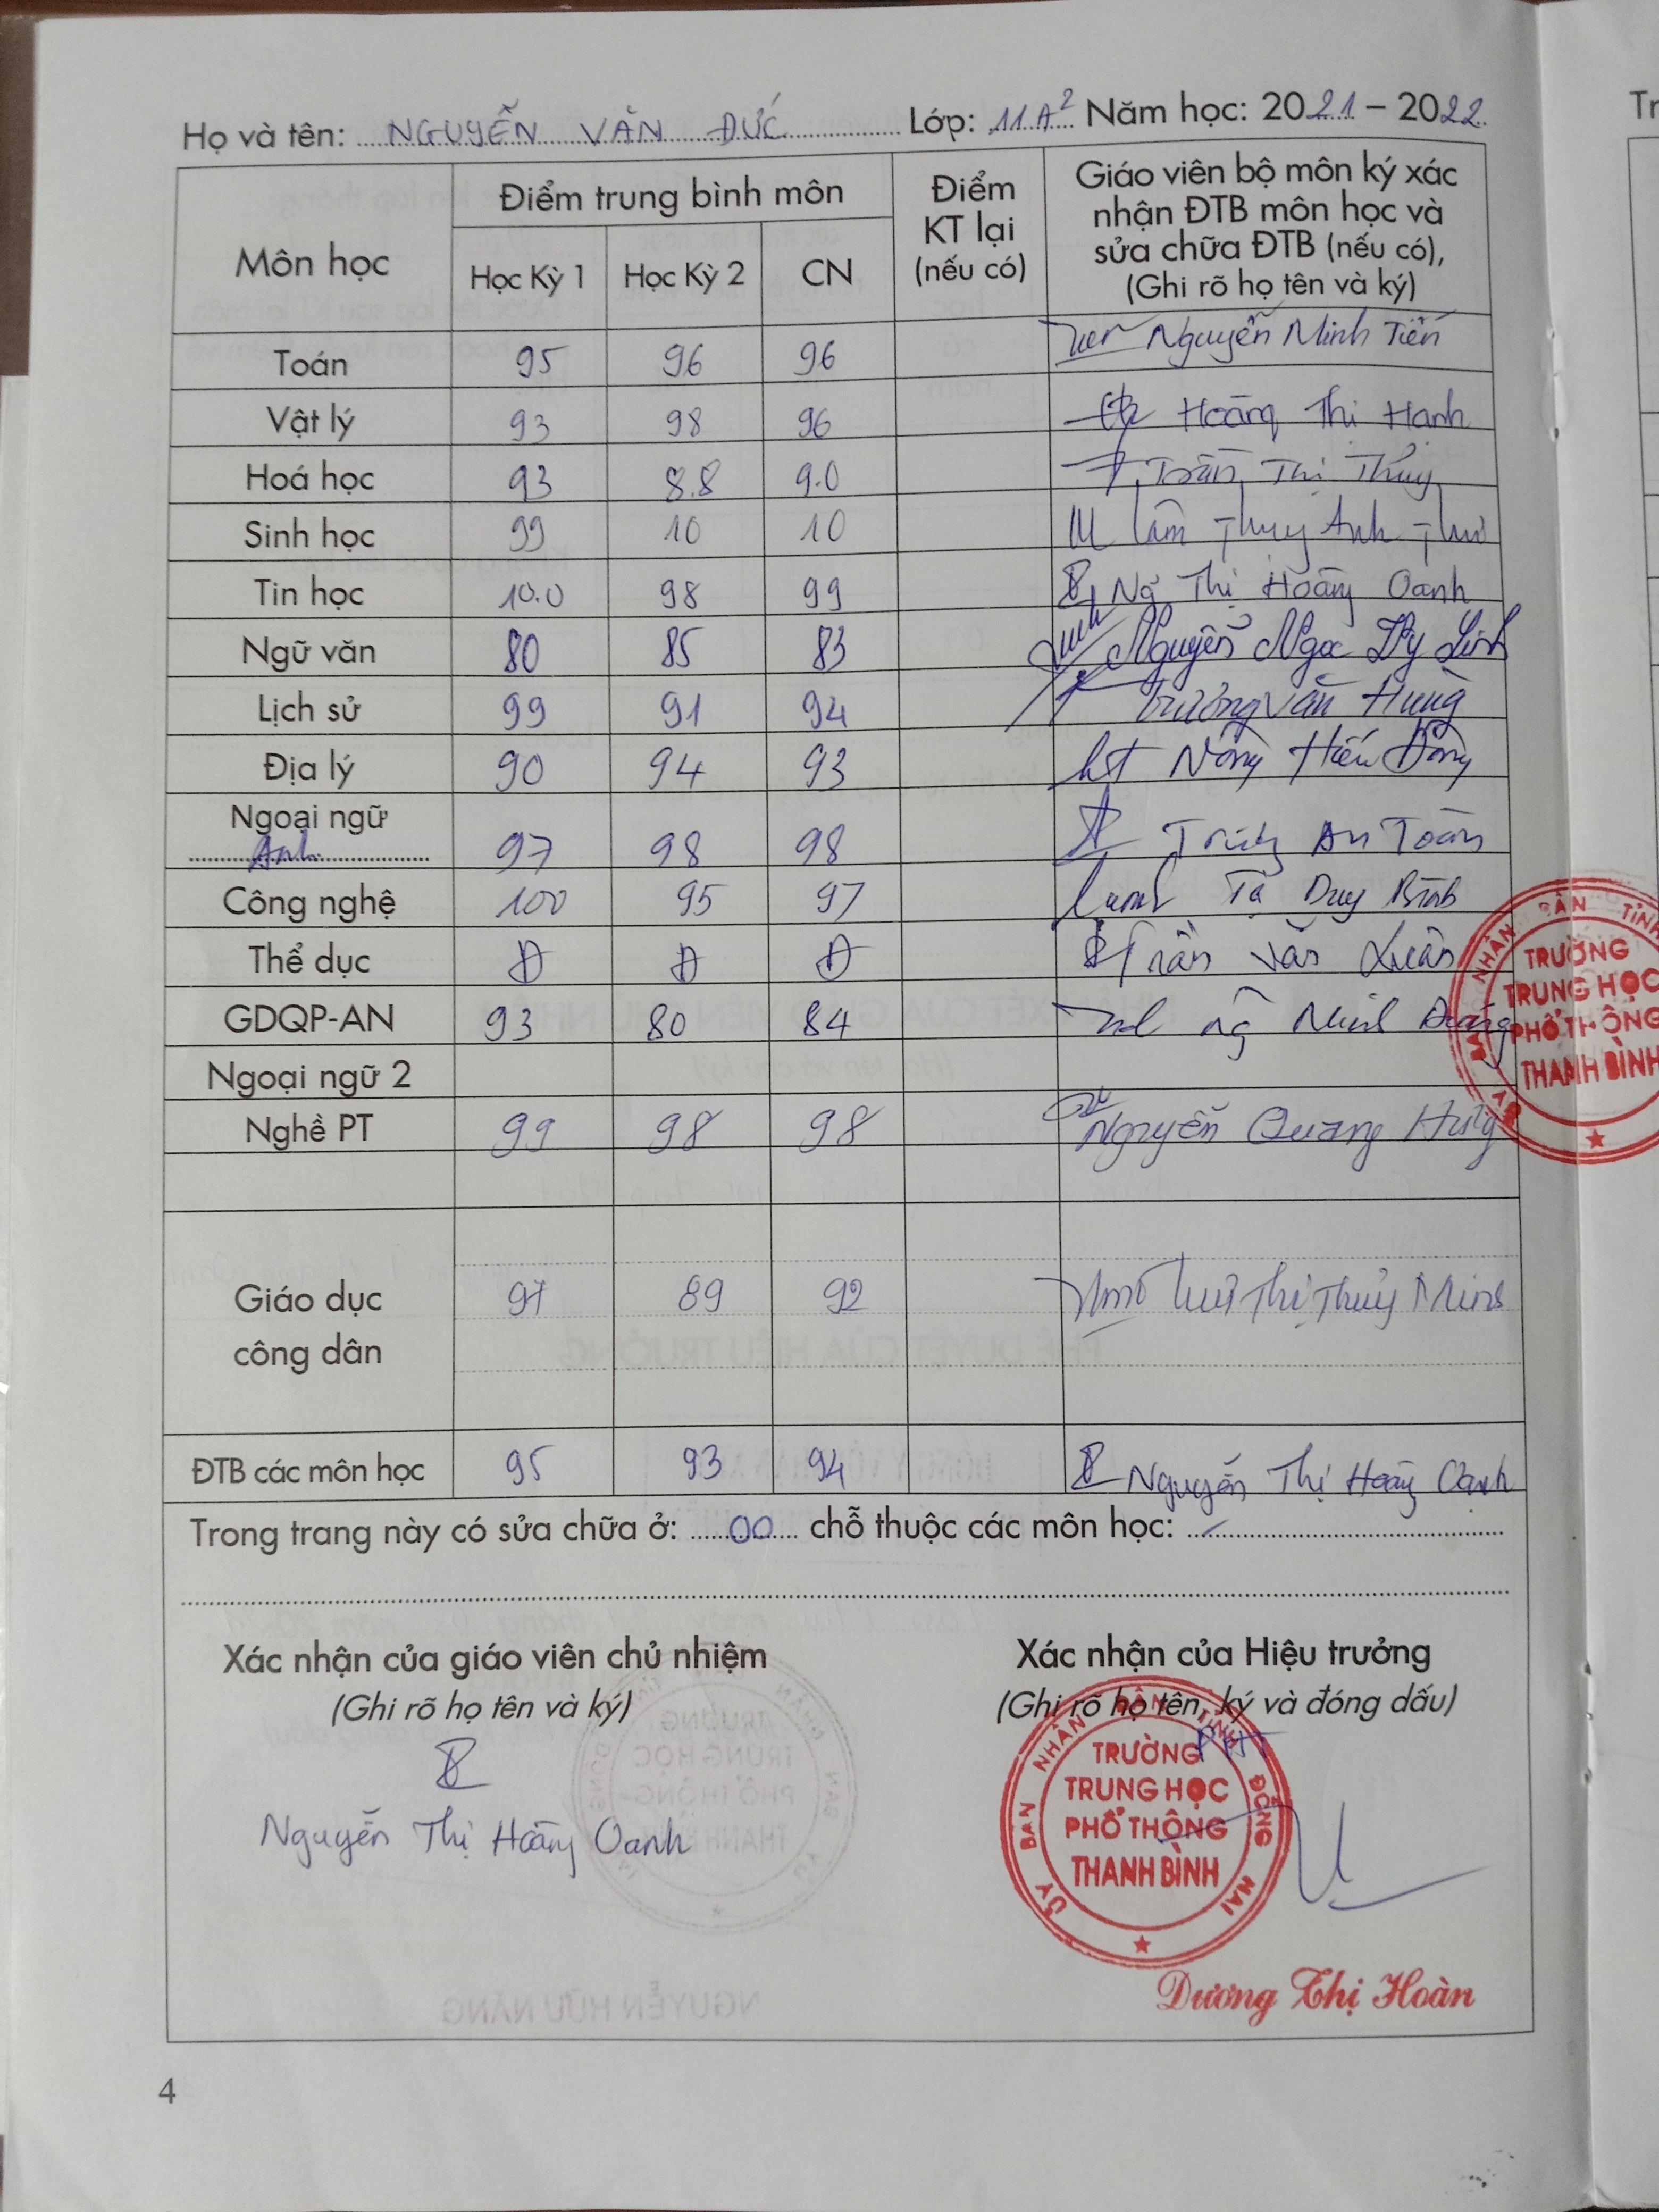 Họ và tên: NGUYỄN VĂN ĐỨC Lớp: 11A2 Năm học: 2021 – 2022
Môn học Điểm trung bình môn Điểm KT lại (nếu có) Giáo viên bộ môn ký xác nhận ĐTB môn học và sửa chữa ĐTB (nếu có), (Ghi rõ họ tên và ký)
Học Kỳ 1 Học Kỳ 2 CN
Toán 95 96 96 Nguyễn Minh Tiến
Vật lý 93 98 96 Hoàng Thị Hạnh
Hoá học 93 8.8 9.0 Trần Thị Thủy
Sinh học 99 10 10 Lâm Thụy Anh Thư
Tin học 10.0 98 99 Ng̃ Thị Hoàng Oanh
Ngữ văn 80 85 83 Nguyễn Ngọc Linh
Lịch sử 99 91 94 Trương Văn Hùng
Địa lý 90 94 93 Nông Hiếu Đông
Ngoại ngữ
Anh 97 98 98 An Toàn
Công nghệ 100 95 97 Tạ Duy Bình
Thể dục Đ Đ Đ Trần Văn Xuân
GDQP-AN 93 80 84 Ng̃ Minh
Ngoại ngữ 2
Nghề PT 99 98 98 Nguyễn Quang Hưng
Giáo dục công dân 97 89 92 Thị Thủy
ĐTB các môn học 95 93 94 Nguyễn Thị Hoàng Oanh
Trong trang này có sửa chữa ở: 00 chỗ thuộc các môn học: /
Xác nhận của giáo viên chủ nhiệm
(Ghi rõ họ tên và ký)
Nguyễn Thị Hoàng Oanh
Xác nhận của Hiệu trưởng
(Ghi rõ họ tên, ký và đóng dấu)
ỦY BAN NHÂN DÂN TỈNH ĐỒNG NAI
TRƯỜNG
TRUNG HỌC
PHỔ THÔNG
THANH BÌNH
Dương Thị Hoàn
ỦY BAN NHÂN DÂN TỈNH
TRƯỜNG
TRUNG HỌC
PHỔ THÔNG
THANH BÌNH
4
Tr